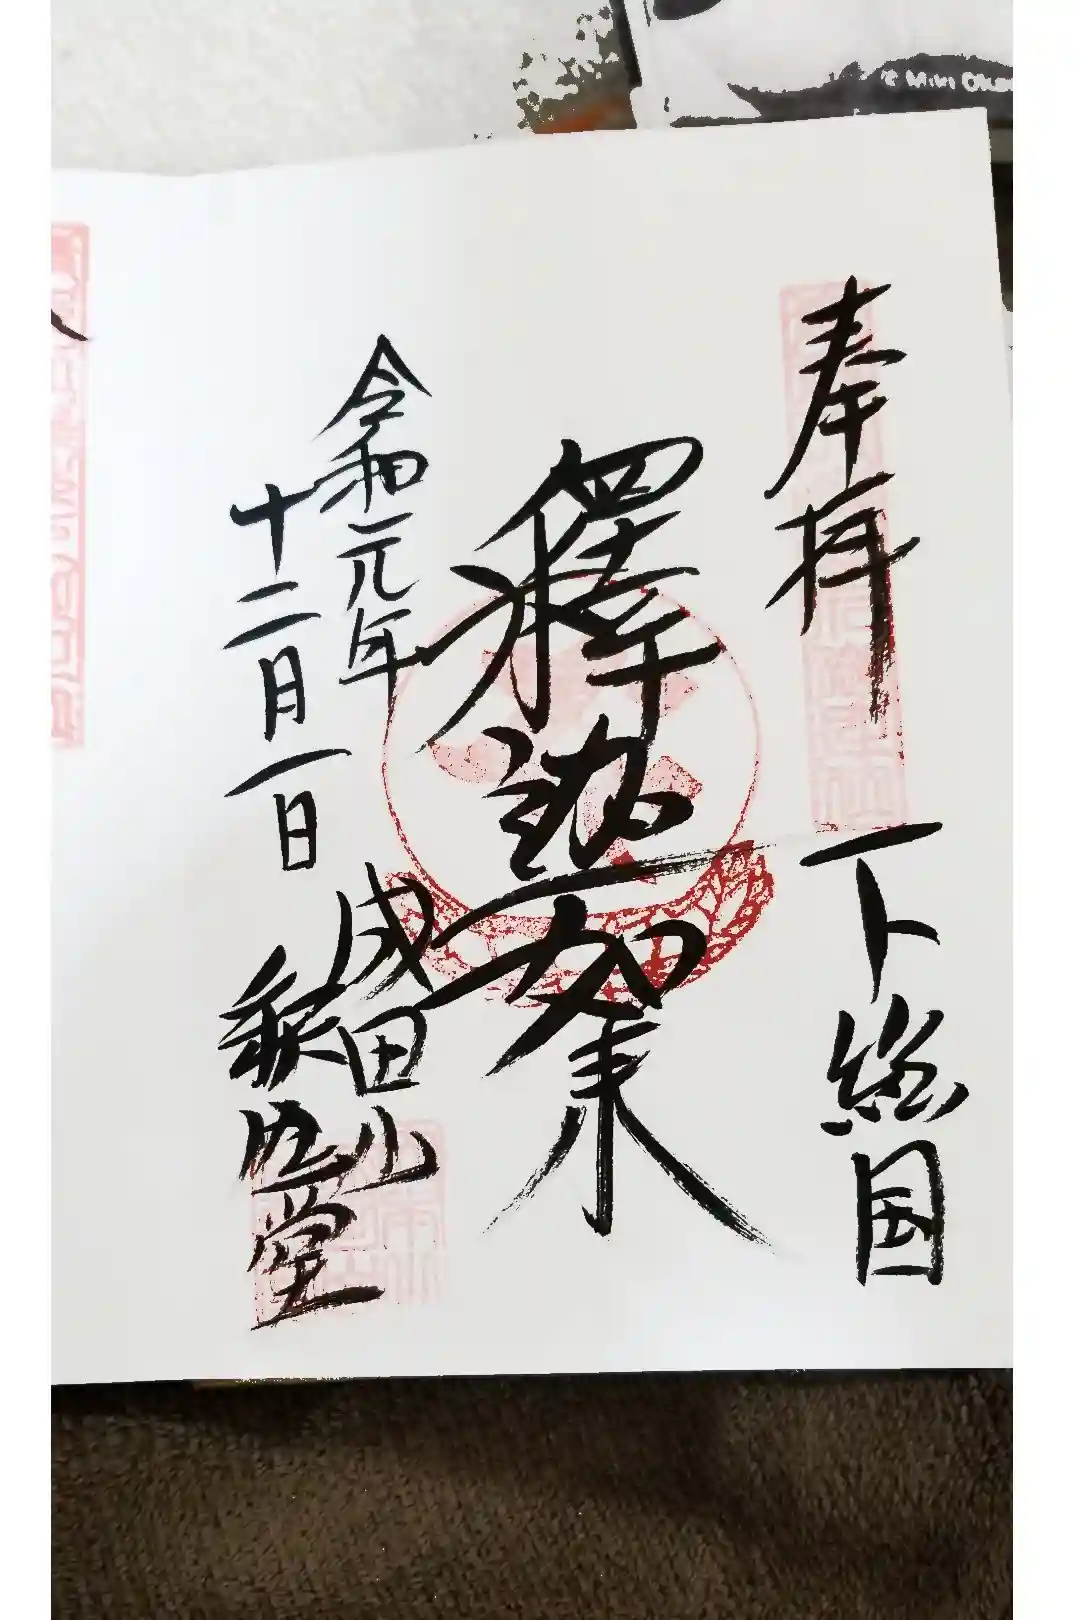 © Miki
奉拝 下総国
釋迦如来
令和元年
十二月一日
成田山
釈迦堂